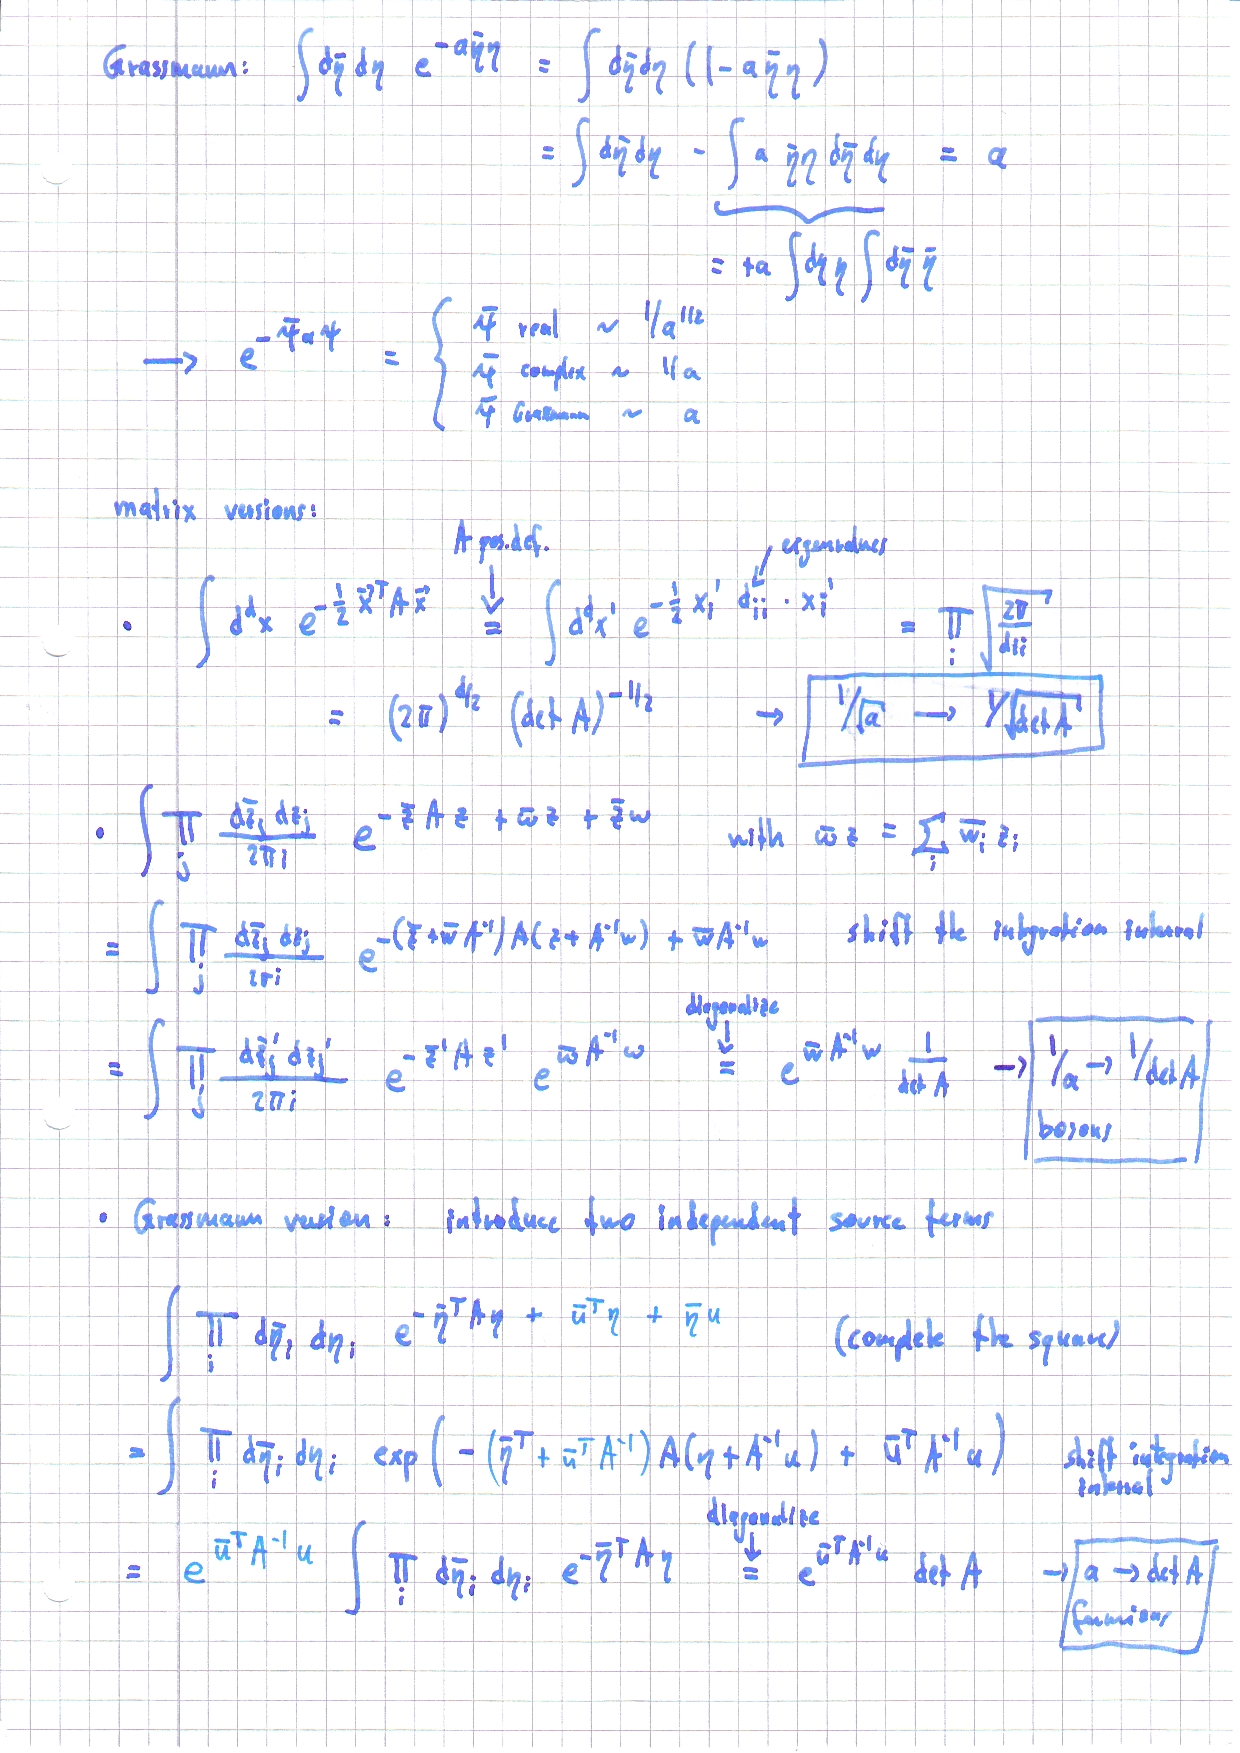 Grassmann: ∫ dη̄ dη e^{-aη̄η} = ∫ dη̄dη (1 - a η̄ η)
= ∫ dη̄ dη - ∫ a η̄η dη̄ dη = a
= +a ∫ dη η ∫ dη̄ η̄
→ e^{-ψ̄aψ} = { ψ̄ real ~ 1/a^{1/2}
ψ̄ complex ~ 1/a
ψ̄ Grassmann ~ a
matrix versions:
A pos.def. ↓ eigenvalues
• ∫ d^d x e^{-1/2 x⃗^T A x⃗} = ∫ d^d x' e^{-1/2 x_i' d_{ii} · x_i'} = ∏_i √(2π/d_{ii})
= (2π)^{d/2} (det A)^{-1/2} → 1/√a → 1/√det A
• ∫ ∏_j dz̄_j dz_j / 2πi e^{-z̄ A z + w̄ z + z̄ w} with w̄ z = Σ_i w̄_i z_i
= ∫ ∏_j dz̄_j dz_j / 2πi e^{-(z̄ + w̄ A^{-1}) A (z + A^{-1}w) + w̄A^{-1}w} shift the integration interval
diagonalize ↓
= ∫ ∏_j dz̄_j' dz_j' / 2πi e^{-z̄' A z'} e^{w̄ A^{-1} w} = e^{w̄ A^{-1} w} 1/det A → 1/a → 1/det A
bosons
• Grassmann version: introduce two independent source terms
∫ ∏_i dη̄_i dη_i e^{-η̄^T A η + ū^T η + η̄ u} (complete the square)
= ∫ ∏_i dη̄_i dη_i exp( - (η̄^T + ū^T A^{-1}) A (η + A^{-1} u) + ū^T A^{-1} u ) shift integration
interval
diagonalize ↓
= e^{ū^T A^{-1} u} ∫ ∏_i dη̄_i dη_i e^{-η̄^T A η} = e^{ū^T A^{-1} u} det A → a → det A
fermions